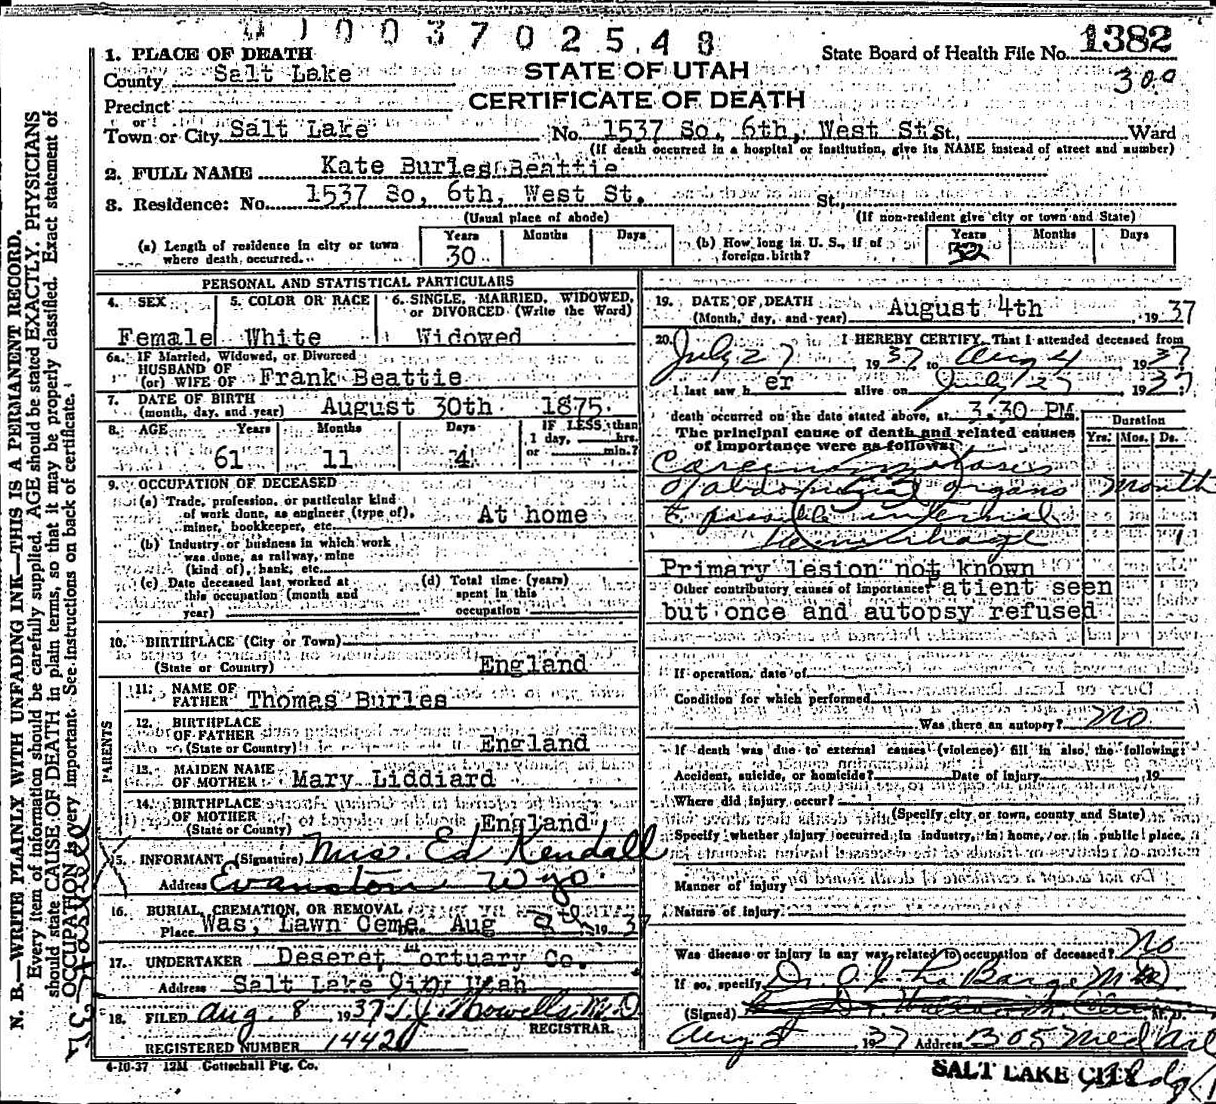 003702548
1. PLACE OF DEATH
County Salt Lake
Precinct
or
Town or City Salt Lake
STATE OF UTAH
CERTIFICATE OF DEATH
State Board of Health File No. 1382
300
No. 1537 So, 6th, West St. St., Ward
(If death occurred in a hospital or institution, give its NAME instead of street and number)
2. FULL NAME Kate Burles Beattie
3. Residence: No. 1537 So, 6th, West St. St.,
(Usual place of abode)
(If non-resident give city or town and State)
(a) Length of residence in city or town where death occurred
Years Months Days
30
(b) How long in U. S., if of foreign birth?
Years Months Days
32
PERSONAL AND STATISTICAL PARTICULARS
4. SEX
Female
5. COLOR OR RACE
White
6. SINGLE, MARRIED, WIDOWED, or DIVORCED (Write the Word)
Widowed
6a. IF Married, Widowed, or Divorced
HUSBAND OF
(or) WIFE OF Frank Beattie
7. DATE OF BIRTH
(month, day, and year) August 30th 1875.
8. AGE Years Months Days IF LESS than
1 day, hrs.
or min.?
61 11 4
9. OCCUPATION OF DECEASED
(a) Trade, profession, or particular kind
of work done, as engineer (type of),
miner, bookkeeper, etc. At home
(b) Industry or business in which work
was done, as railway, mine
(kind of), bank, etc.
(c) Date deceased last worked at
this occupation (month and
year)
(d) Total time (years)
spent in this
occupation
10. BIRTHPLACE (City or Town)
(State or Country) England
PARENTS
11. NAME OF
FATHER Thomas Burles
12. BIRTHPLACE
OF FATHER
(State or Country) England
13. MAIDEN NAME
OF MOTHER Mary Liddiard
14. BIRTHPLACE
OF MOTHER
(State or County) England
15. INFORMANT (Signature) Mrs. Ed Kendall
Address Evanston Wyo.
16. BURIAL, CREMATION, OR REMOVAL
Place Was, Lawn Ceme. Aug 8th 1937
17. UNDERTAKER Deseret Mortuary Co.
Address Salt Lake City Utah
18. FILED Aug. 8, 1937 T.J. Howells M.D.
REGISTRAR.
REGISTERED NUMBER 14420
4-10-37 12M Gottschall Ptg. Co.
19. DATE OF DEATH
(Month, day, and year) August 4th, 1937
20. I HEREBY CERTIFY, That I attended deceased from
July 27 1937, to Aug 4, 1937
I last saw her alive on July 27, 1937
death occurred on the date stated above, at 3.30 PM.
The principal cause of death and related causes
of importance were as follows:
Duration
Yrs. Mos. Ds.
of abdominal organs month
possible internal
hemorrhage 1
Primary lesion not known
Other contributory causes of importance: Patient seen
but once and autopsy refused
If operation, date of
Condition for which performed
Was there an autopsy? No
If death was due to external causes (violence) fill in also the following:
Accident, suicide, or homicide? Date of injury, 19
Where did injury occur?
(Specify city or town, county and State)
Specify whether injury occurred in industry, in home, or in public place.
Manner of injury
Nature of injury
Was disease or injury in any way related to occupation of deceased? No
If so, specify Dr. La Barge MD
(Signed) M. D.
Aug 5, 1937 Address 305 Med Arts
Bldg
SALT LAKE CITY
N. B.—WRITE PLAINLY WITH UNFADING INK—THIS IS A PERMANENT RECORD.
Every item of information should be carefully supplied. AGE should be stated EXACTLY. PHYSICIANS
should state CAUSE OF DEATH in plain terms, so that it may be properly classified. Exact statement of
OCCUPATION is very important. See instructions on back of certificate.